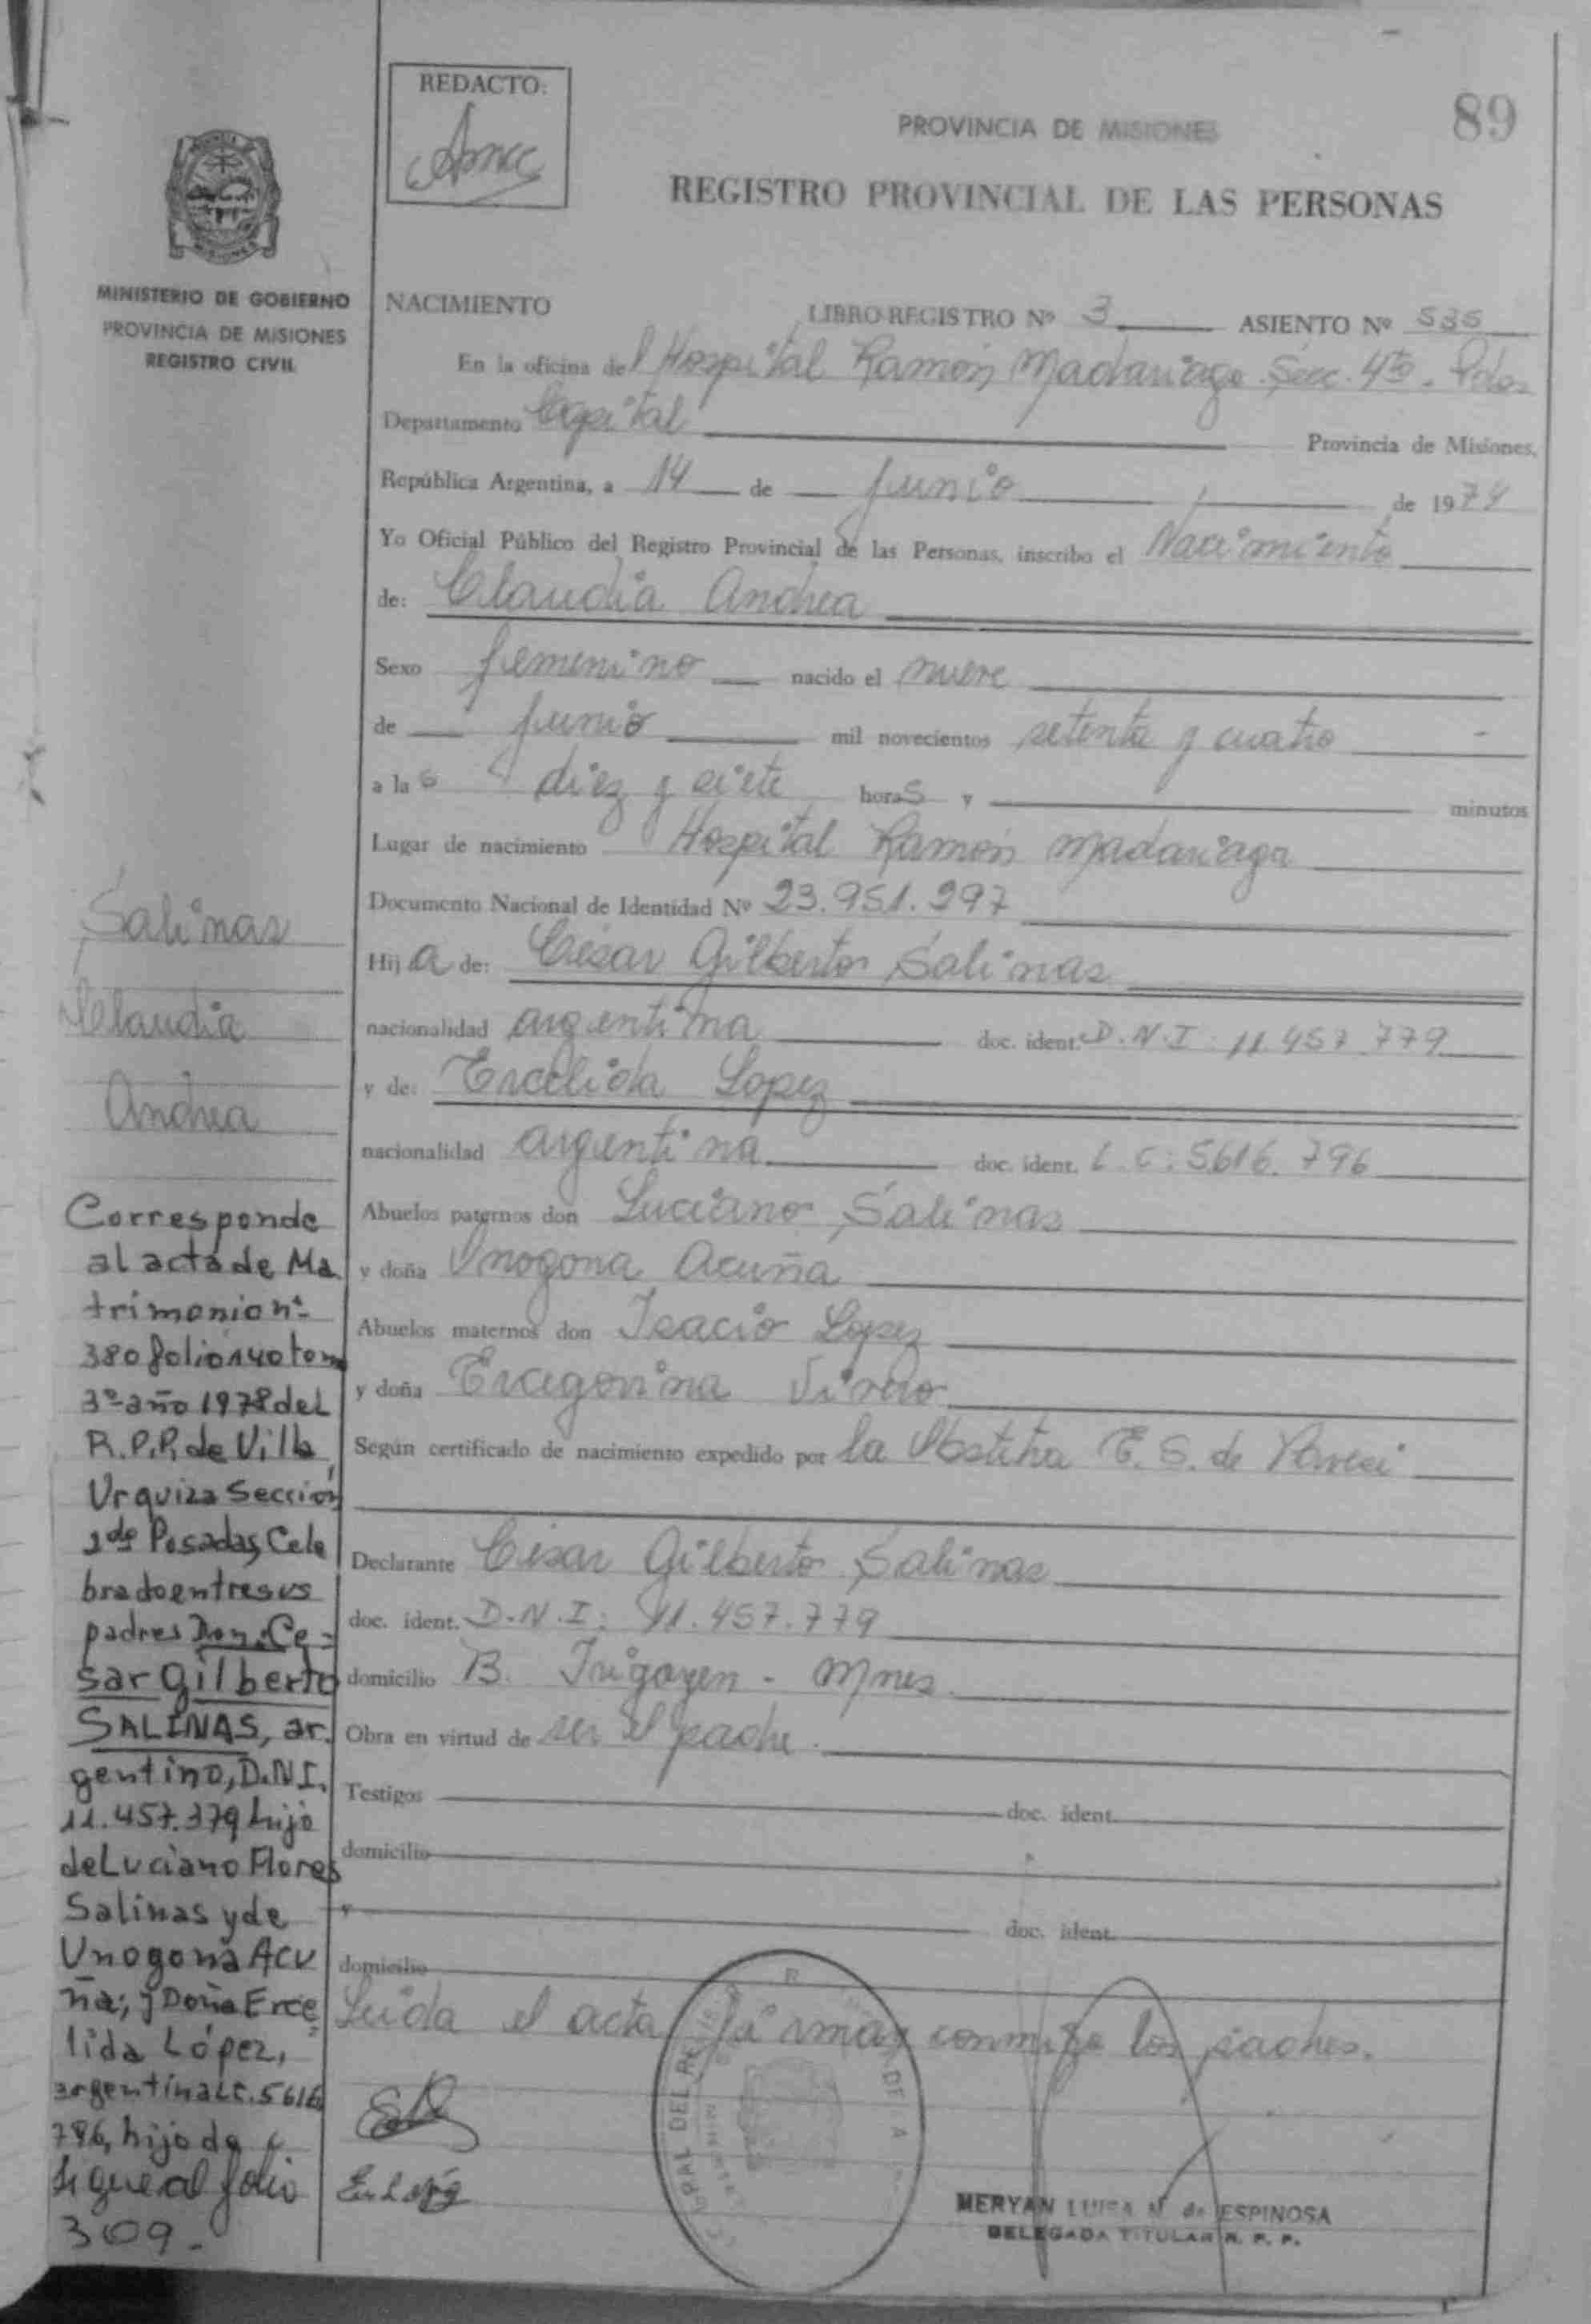 REDACTO:
89
PROVINCIA DE MISIONES
REGISTRO PROVINCIAL DE LAS PERSONAS
MINISTERIO DE GOBIERNO
PROVINCIA DE MISIONES
REGISTRO CIVIL
NACIMIENTO LIBRO-REGISTRO Nº 3 ASIENTO Nº 535
En la oficina del Hospital Ramón Madariaga. Secc. 4ta. Pdas
Departamento Capital Provincia de Misiones,
República Argentina, a 14 de junio de 1974
Yo Oficial Público del Registro Provincial de las Personas, inscribo el Nacimiento
de: Claudia Andrea
Sexo femenino nacido el nueve
de junio mil novecientos setenta y cuatro
a las diez y siete horas y minutos
Lugar de nacimiento Hospital Ramón Madariaga
Documento Nacional de Identidad Nº 23.951.297
Hija de: César Gilberto Salinas
nacionalidad argentina doc. ident. D.N.I: 11.457.779
y de: Ercelida Lopez
nacionalidad argentina doc. ident. L.C: 5.616.796
Abuelos paternos don Luciano Salinas
y doña Unogona Acuña
Abuelos maternos don Isacio Lopez
y doña
Según certificado de nacimiento expedido por la Obstetra E. S. de
Declarante César Gilberto Salinas
doc. ident. D.N.I: 11.457.779
domicilio B. Irigoyen - Mnes.
Obra en virtud de ser el padre.
Testigos doc. ident.
domicilio
y doc. ident.
domicilio
Leida el acta firman conmigo los padres.
MERYAN LUISA M. de ESPINOSA
DELEGADA TITULAR R. P. P.
Salinas
Claudia
Andrea
Corresponde
al acta de Ma
trimonio nº
380 folio 140 tomo
3º año 1978 del
R.P.P. de Villa
Urquiza Sección
2da Posadas, Cele
brado entre sus
padres Don: Ce-
sar Gilberto
SALINAS, ar.
gentino, D.N.I.
11.457.379 hijo
de Luciano Flores
Salinas y de
Unogona Acu
ña; y Doña Erce
lida López,
argentina L.C. 5616
796, hijo de
sigue al folio
309.-